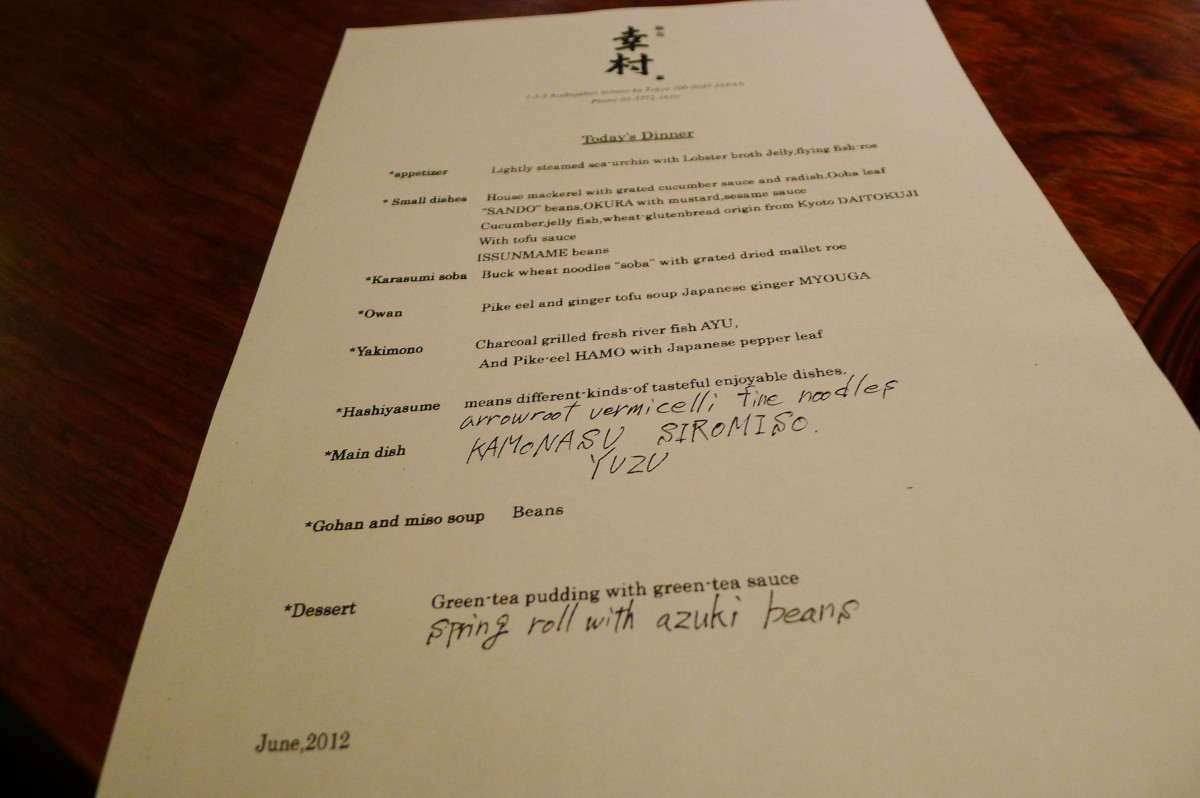 幸村
Today's Dinner
*appetizer Lightly steamed sea-urchin with Lobster broth Jelly,flying fish-roe
* Small dishes House mackerel with grated cucumber sauce and radish,Ooba leaf
"SANDO" beans,OKURA with mustard,sesame sauce
Cucumber,jelly fish,wheat-glutenbread origin from Kyoto DAITOKUJI
With tofu sauce
ISSUNMAME beans
*Karasumi soba Buck wheat noodles "soba" with grated dried mallet roe
*Owan Pike eel and ginger tofu soup Japanese ginger MYOUGA
*Yakimono Charcoal grilled fresh river fish AYU,
And Pike-eel HAMO with Japanese pepper leaf
*Hashiyasume means different-kinds-of tasteful enjoyable dishes.
arrowroot vermicelli fine noodles
*Main dish KAMONASU SIROMISO.
YUZU
*Gohan and miso soup Beans
*Dessert Green-tea pudding with green-tea sauce
spring roll with azuki beans
June,2012